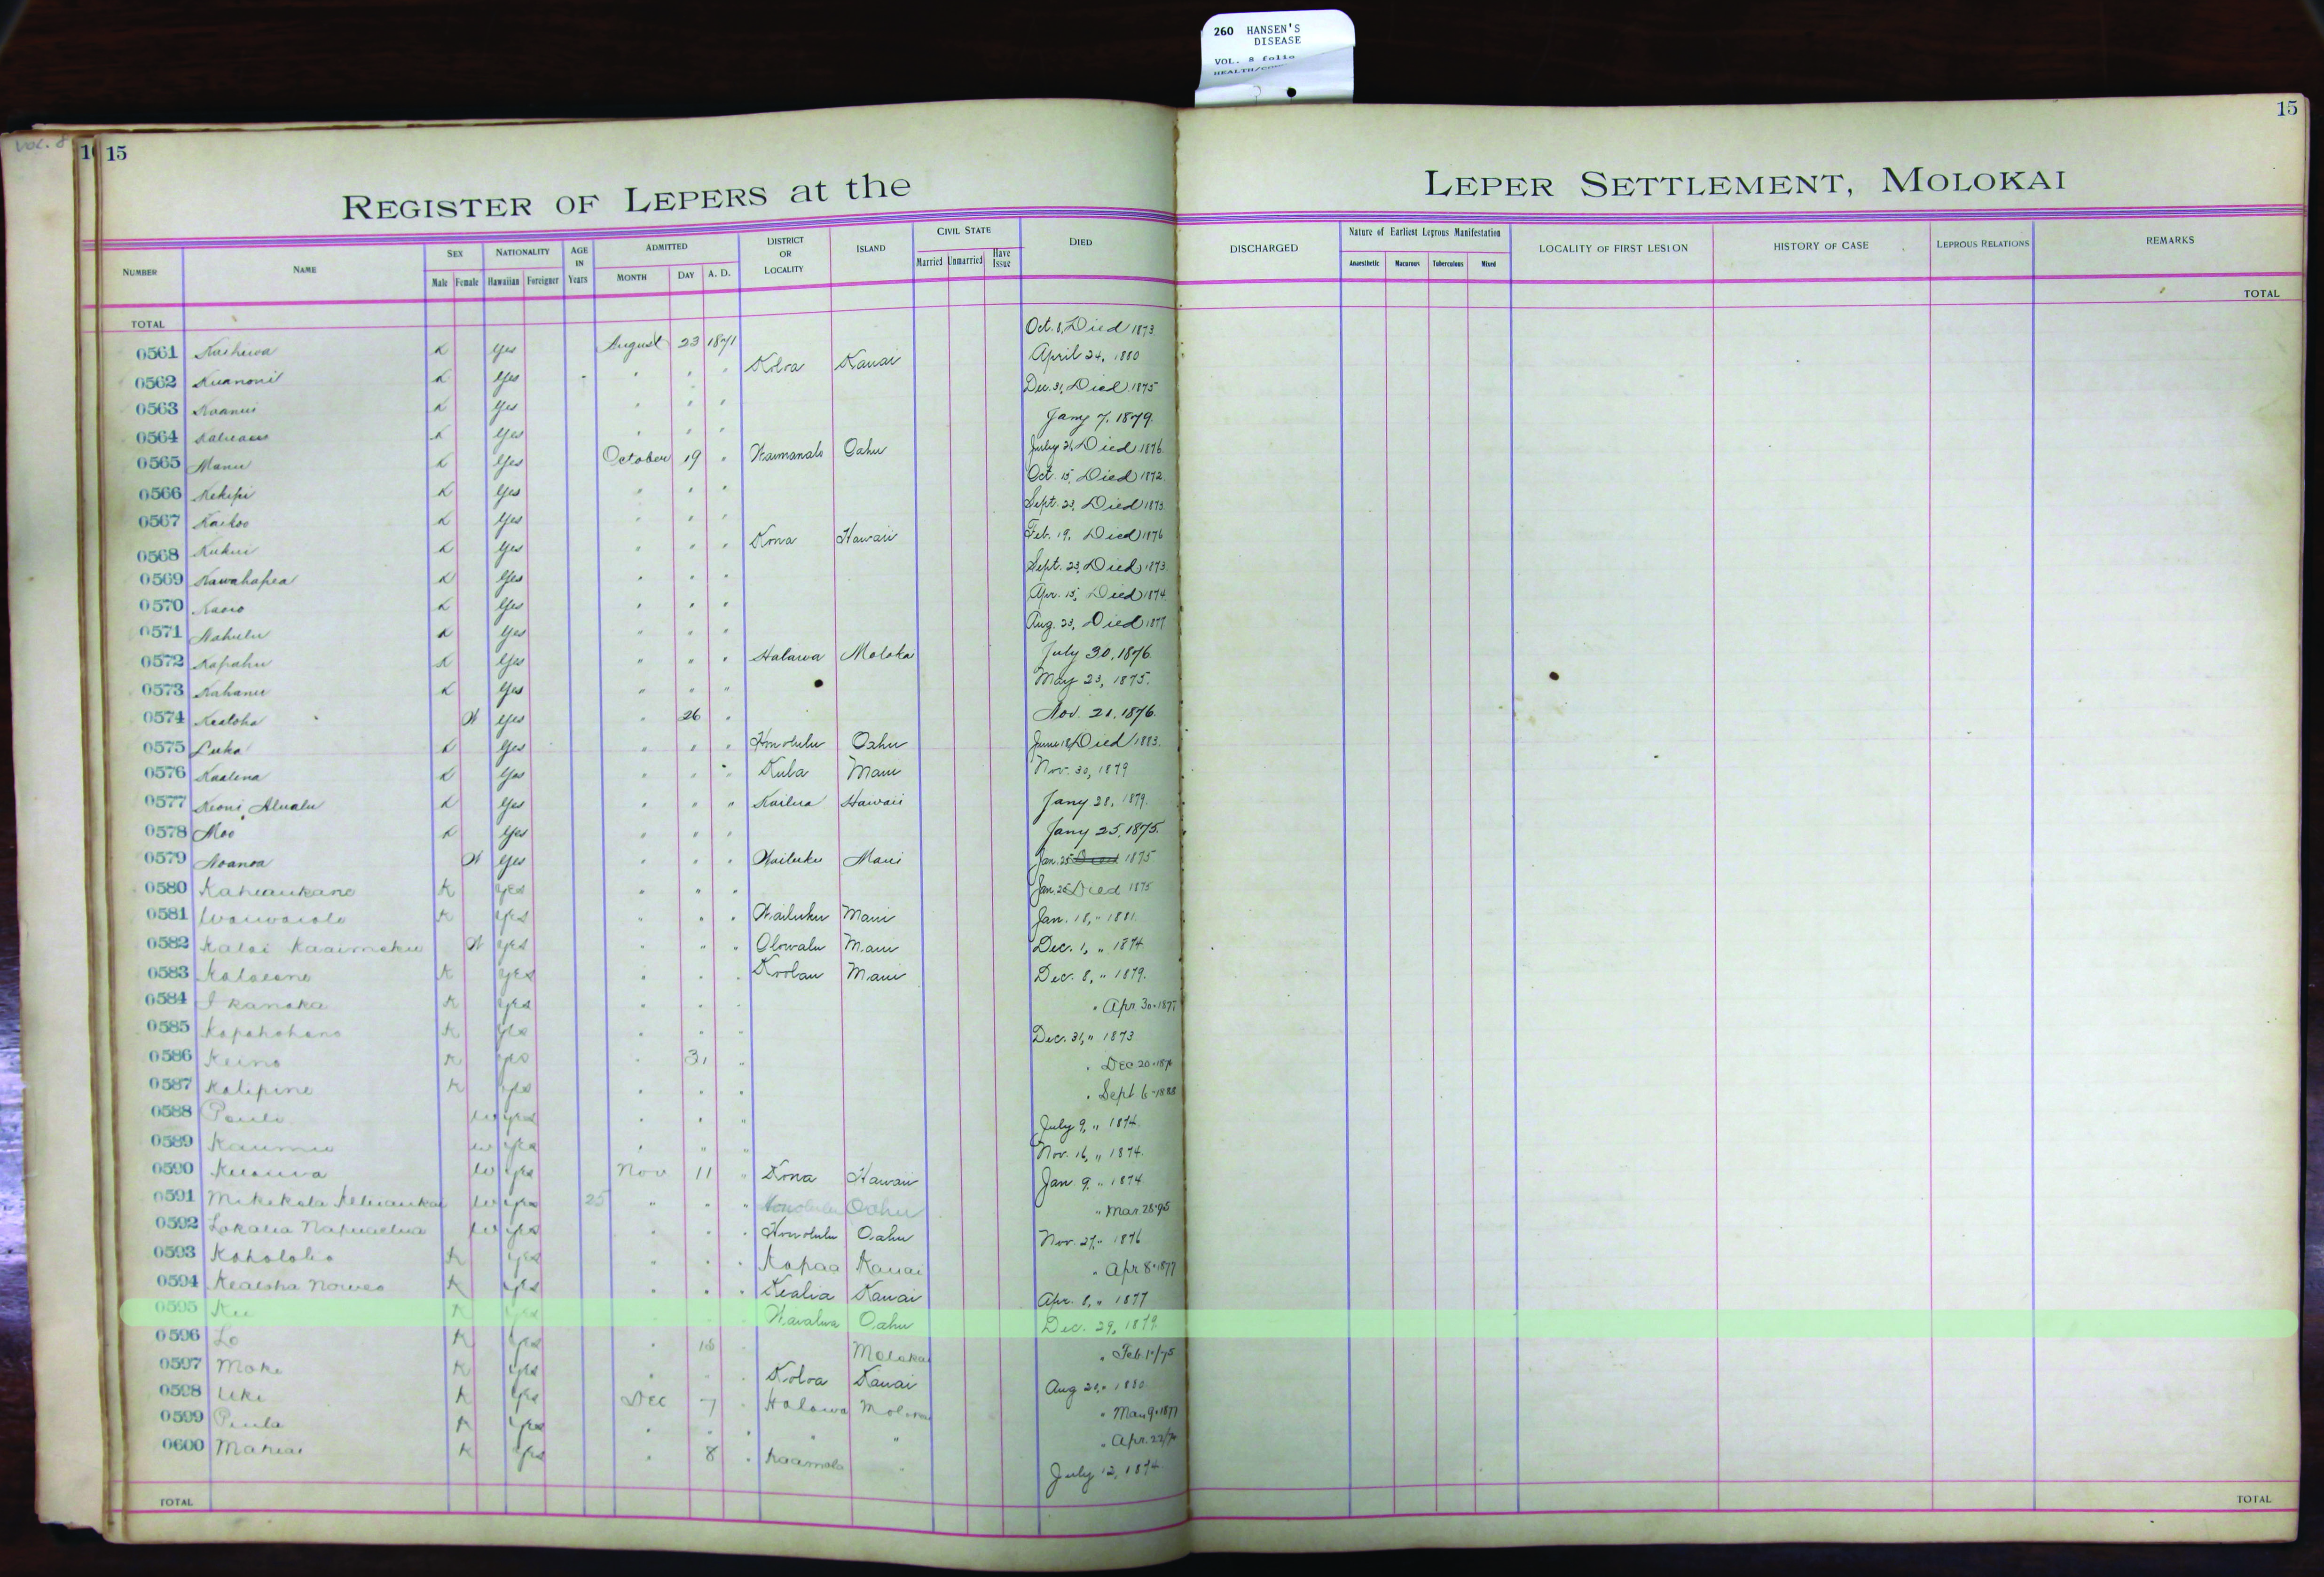 260 HANSEN'S
DISEASE
VOL. 8 folio
VOL. 8
15
15
REGISTER OF LEPERS at the
LEPER SETTLEMENT, MOLOKAI
NUMBER NAME SEX Male Female NATIONALITY Hawaiian Foreigner AGE IN Years ADMITTED MONTH DAY A. D. DISTRICT OR LOCALITY ISLAND CIVIL STATE Married Unmarried Have Issue DIED
DISCHARGED Nature of Earliest Leprous Manifestation Anaesthetic Macurous Tuberculous Mixed LOCALITY OF FIRST LESION HISTORY OF CASE LEPROUS RELATIONS REMARKS
TOTAL TOTAL
0561 K Yes August 23 1871 Oct. 8, Died 1873
0562 K Yes " " " Koloa Kauai April 24, 1880
0563 K Yes " " " Dec. 31, Died 1875
0564 K Yes " " " Jany 7, 1879.
0565 Manu K Yes October 19 " Waimanalo Oahu July 21, Died 1876
0566 Kekipi K Yes " " " Oct. 15, Died 1872
0567 Kaikoo K Yes " " " Sept. 23, Died 1873
0568 Kukui K Yes " " " Kona Hawaii Feb. 19, Died 1876
0569 Kawahapea K Yes " " " Sept. 23, Died 1873
0570 K Yes " " " Apr. 15, Died 1874
0571 Nahulu K Yes " " " Aug. 23, Died 1877
0572 Kapahu K Yes " " " Halawa Moloka July 30, 1876
0573 Kahanu K Yes " " " May 23, 1875.
0574 Kealoha W Yes " 26 " Nov. 21, 1876.
0575 Luka K Yes " " " Honolulu Oahu June 18, Died 1883.
0576 Kaalena K Yes " " " Kula Maui Nov. 30, 1879
0577 Keoni Alualu K Yes " " " Kailua Hawaii Jany 28, 1879.
0578 Moo K Yes " " " Jany 25, 1875.
0579 Noanoa W Yes " " " Wailuku Maui Jan. 25 Died 1875
0580 Kahiaukane K Yes " " " Jan. 25 Died 1875
0581 Waiwaiole K Yes " " " Wailuku Maui Jan. 18, " 1881.
0582 Kalai Kaaimoku W Yes " " " Olowalu Maui Dec. 1, " 1874
0583 K Yes " " " Koolau Maui Dec. 8, " 1879.
0584 Ikanaka K Yes " " " " Apr 30 - 187
0585 Kapahohano K Yes " " " Dec. 31, " 1873
0586 Keino K Yes " 31 " " Dec 20 - 187
0587 Kalipine K Yes " " " " Sept 6 - 1888
0588 Pauli W Yes " " " July 9, " 1874
0589 Kaumu W Yes " " " Nov. 16, " 1874.
0590 W Yes Nov 11 " Kona Hawaii Jan 9, " 1874
0591 W Yes 25 " " " Honolulu Oahu " Mar. 28-75
0592 W Yes " " " Honolulu Oahu Nov. 27, " 1876
0593 Koholoho K Yes " " " Kapaa Kauai " Apr 8 - 1877
0594 Kealoha K Yes " " " Kealia Kauai Apr. 8, " 1877
0595 Ku K Yes " " " Waialua Oahu Dec. 29, 1879
0596 Lo K Yes " 15 " Molokai " Feb. 1"/75
0597 Moke K Yes " " " Koloa Kauai Aug 21, " 1880
0598 Uki K Yes Dec 7 " Halawa Molokai " Mar 9 - 1877
0599 Paula K Yes " " " " " " Apr. 22/7
0600 Mahiai K Yes " 8 " Kaamola " July 12, 1874.
TOTAL TOTAL